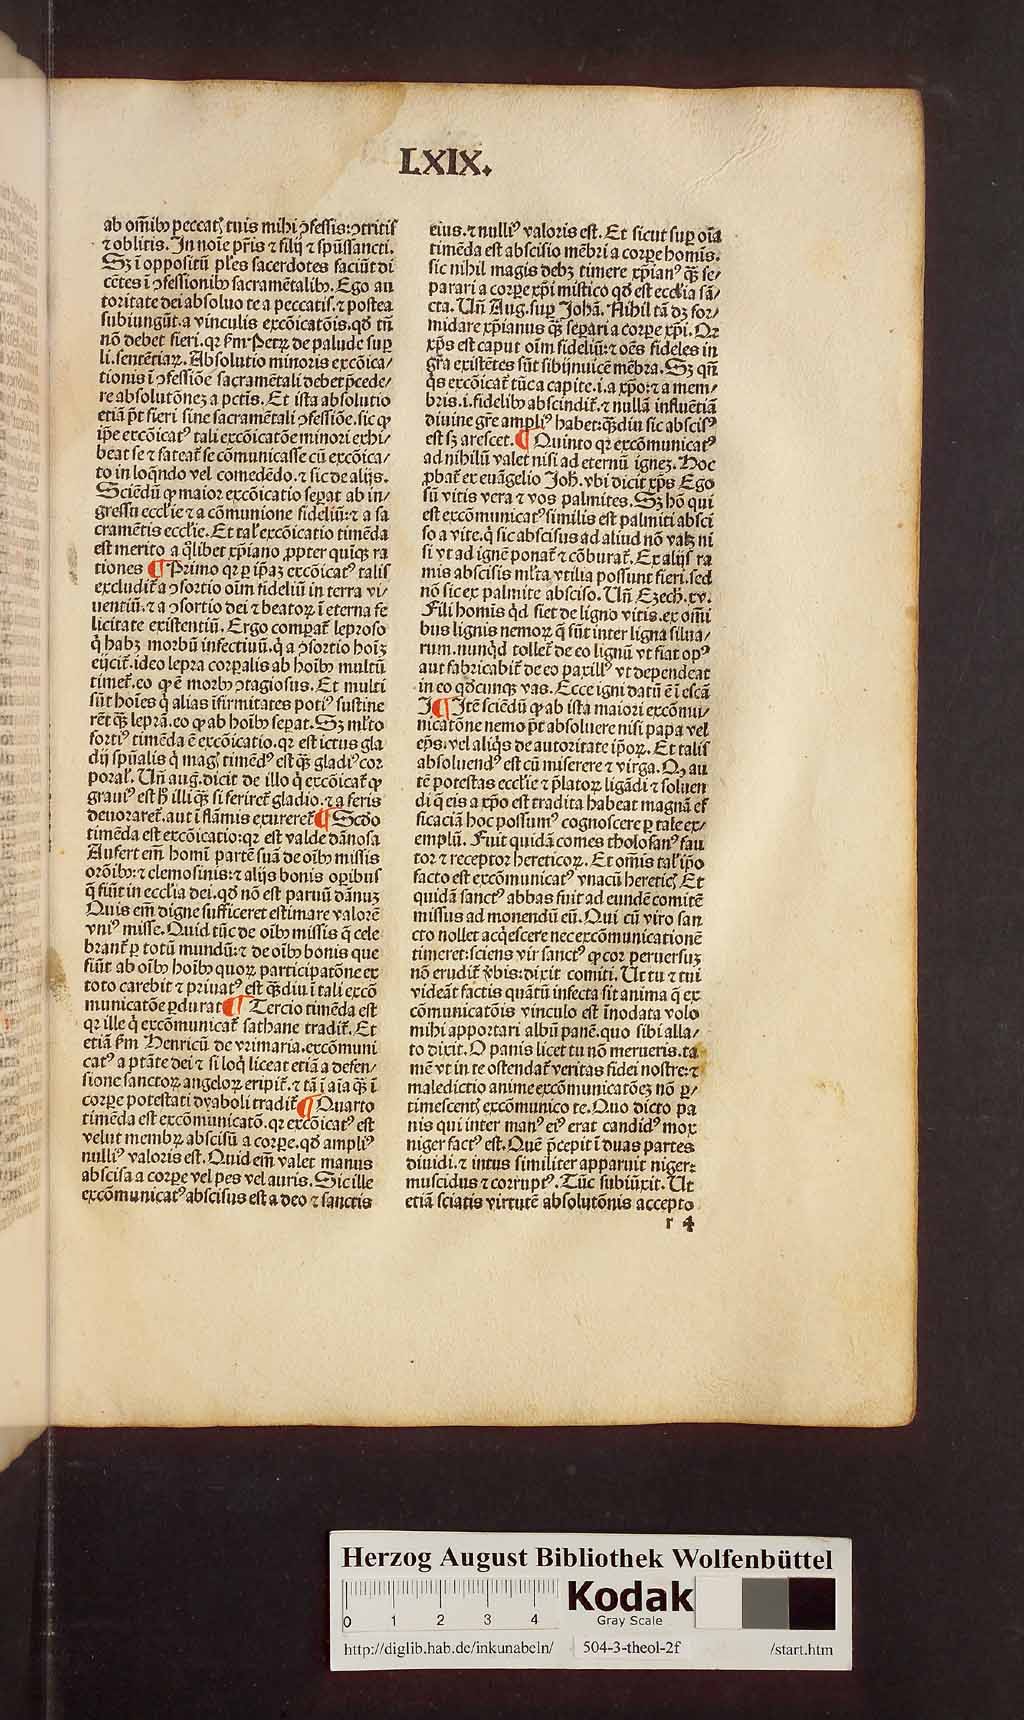 LXIX.
ab om̃ibꝫ peccatꝭ tuis mihi ↄfessis: ↄtritis
⁊ oblitis. In noĩe pr̃is ⁊ filij ⁊ sp̃ussancti.
Sꝫ ĩ oppositũ pl̃es sacerdotes faciũt di
cẽtes ĩ ↄfessionibꝫ sacramẽtalibꝫ. Ego au
toritate dei absoluo te a peccatis. ⁊ postea
subiungũt. a vinculis excõicatõis. qd̃ tñ
nõ debet fieri. qr fm̃ Petrꝫ de palude sup
li. sentẽtiaꝝ. Absolutio minoris excõica/
tionis ĩ ↄfessiõe sacramẽtali debet p̃cede/
re absolutõnez a pctis. Et ista absolutio
etiã p̃t fieri sine sacramẽtali ↄfessiõe. sic ꝙ
ip̃e excõicatꝰ tali excõicatõe minori exhi/
beat se ⁊ fateat̃ se cõmunicasse cũ excõica/
to in loq̃ndo vel comedẽdo. ⁊ sic de alijs.
Sciẽdũ ꝙ maior excõicatio sepat ab in/
gressu eccl̃ie ⁊ a cõmunione fideliũ: ⁊ a sa
cramẽtis eccl̃ie. Et tal̃ excõicatio timẽda
est merito a q̃libet xp̃iano ꝓpter quĩqꝫ ra
tiones ¶ Primo qr ꝑ ip̃aꝫ excõicatꝰ talis
excludit̃ a ↄsortio oĩm fideliũ in terra vi/
uentiũ. ⁊ a ↄsortio dei ⁊ beatoꝝ ĩ eterna fe
licitate existentiũ. Ergo compat̃ leproso
q̃ habꝫ morbũ infectiuũ. q̃ a ↄsortio hoĩꝫ
eijcit̃. ideo lepra corꝑalis ab hoĩbꝫ multũ
timet̃. eo ꝙ ẽ morbꝫ ↄtagiosus. Et multi
sũt hoĩes q̃ alias ĩfirmitates potiꝰ sustine
rẽt ꝙ̃ leprã. eo ꝙ ab hoĩbꝫ sepat. Sꝫ ml̃to
fortiꝰ timẽda ẽ excõicatio. qr est ictus gla
dij sp̃ualis q̃ magꝭ timẽdꝰ est ꝙ̃ gladiꝰ cor
poral̃. Uñ aug. dicit de illo q̃ excõicat̃ ꝙ
grauiꝰ est h̃ illi ꝙ̃ si feriret̃ gladio. ⁊ a feris
deuoraret̃. aut ĩ flãmis exureret̃ ¶ Scd̃o
timẽda est excõicatio: qr est valde dãnosa
Aufert em̃ homĩ partẽ suã de oĩbꝫ missis
orõibꝫ: ⁊ elemosinis: ⁊ alijs bonis oꝑibus
q̃ fiũt in eccl̃ia dei. qd̃ nõ est paruũ dãnuꝫ
Quis em̃ digne sufficeret estimare valorẽ
vniꝰ misse. Quid tũc de oĩbꝫ missis q̃ cele
brant̃ ꝑ totũ mundũ: ⁊ de oĩbꝫ bonis que
fiũt ab oĩbꝫ hoĩbꝫ quoꝝ participatõne ex
toto carebit ⁊ priuatꝰ est ꝙ̃diu ĩ tali excõ
municatõe ꝑdurat ¶ Tercio timẽda est
qr ille q̃ excõmunicat̃ sathane tradit̃. Et
etiã fm̃ Henricũ de vrimaria. excõmuni
catꝰ a ptãte dei ⁊ si loq̃ liceat etiã a defen/
sione sanctoꝝ angeloꝝ eripit̃. ⁊ tã ĩ aĩa ꝙ̃ ĩ
corꝑe potestati dyaboli tradit̃ ¶ Quarto
timẽda est excõmunicatõ. qr excõicatꝰ est
velut membrꝫ abscisũ a corꝑe. qd̃ ampliꝰ
nulliꝰ valoris est. Quid em̃ valet manus
abscisa a corꝑe vel pes vel auris. Sic ille
excõmunicatꝰ abscisus est a deo ⁊ sanctis
eius. ⁊ nulliꝰ valoris est. Et sicut suꝑ oĩa
timẽda est abscisio mẽbri a corꝑe homis.
sic nihil magis debꝫ timere xp̃ianꝰ ꝙ̃ se/
parari a corꝑe xp̃i mistico qd̃ est eccl̃ia sã/
cta. Uñ Aug. suꝑ Johã. Nihil tã dꝫ for/
midare xp̃ianus ꝙ̃ separi a corꝑe xp̃i. Qr
xp̃s est caput oĩm fideliũ: ⁊ oẽs fideles in
gr̃a existẽtes sũt sibijnuicẽ mẽbra. Sꝫ qñ
q̃s excõicat̃ tũc a capite. i. a xp̃o: ⁊ a mem/
bris. i. fidelibꝫ abscindit̃. ⁊ nullã influẽtiã
diuine gr̃e ampliꝰ habet: ꝙ̃diu sic abscisꝰ
est sꝫ arescet. ¶ Quinto qr excõmunicatꝰ
ad nihilũ valet nisi ad eternũ igneꝫ. Hoc
ꝓbat̃ ex euãgelio Joh. vbi dicit xp̃s Ego
sũ vitis vera ⁊ vos palmites. Sꝫ hõ qui
est excõmunicatꝰ similis est palmiti absci
so a vite. q̃ sic abscisus ad aliud nõ valꝫ ni
si vt ad ignẽ ponat̃ ⁊ cõburat̃. Ex alijs ra
mis abscisis ml̃ta vtilia possunt fieri. sed
nõ sic ex palmite absciso. Uñ Ezech. xv.
Fili homis q̃d fiet de ligno vitis. ex om̃i
bus lignis nemoꝝ q̃ sũt inter ligna silua/
rum. nunq̃d tollet̃ de eo lignũ vt fiat opꝰ
aut fabricabit̃ de eo paxillꝰ vt dependeat
in eo qd̃cunqꝫ vas. Ecce igni datũ ẽ ĩ escã
J¶ Itẽ sciẽdũ ꝙ ab ista maiori excõmui/
nicatõne nemo p̃t absoluere nisi papa vel
ep̃s. vel aliq̃s de autoritate ip̃oꝝ. Et talis
absoluendꝰ est cũ miserere ⁊ virga. Ꝙ au
tẽ potestas eccl̃ie ⁊ p̃latoꝝ ligãdi ⁊ soluen
di q̃ eis a xp̃o est tradita habeat magnã ef
ficaciã hoc possumꝰ cognoscere ꝑ tale ex/
emplũ. Fuit quidã comes tholosanꝰ fau
tor ⁊ receptor hereticoꝝ. Et om̃is tal̃ ip̃o
facto est excõmunicatꝰ vnacũ hereticꝭ Et
quidã sanctꝰ abbas fuit ad eundẽ comitẽ
missus ad monendũ eũ. Qui cũ viro san
cto nollet acq̃escere nec excõmunicationẽ
timeret: sciens vir sanctꝰ ꝙ cor peruersuꝫ
nõ erudit̃ v̾bis: dixit comiti. Ut tu ⁊ tui
videãt factis quãtũ infecta sit anima q̃ ex
cõmunicatõis vinculo est ĩnodata volo
mihi apportari albũ panẽ. quo sibi alla/
to dixit. O panis licet tu nõ merueris. ta
mẽ vt in te ostendat̃ veritas fidei nostre: ⁊
maledictio anime excõmunicatõeꝫ nõ ꝑ/
timescentꝭ excõmunico te. Quo dicto pa
nis qui inter manꝰ eiꝰ erat candidꝰ mox
niger factꝰ est. Quẽ p̃cepit ĩ duas partes
diuidi. ⁊ intus similiter apparuit niger:
muscidus ⁊ corruptꝰ. Tũc subiũxit. Ut
etiã sciatis virtutẽ absolutõnis accepto
r 4
Herzog August Bibliothek Wolfenbüttel
0 1 2 3 4
Kodak
Gray Scale
http://diglib.hab.de/inkunabeln/ 504-3-theol-2f /start.htm